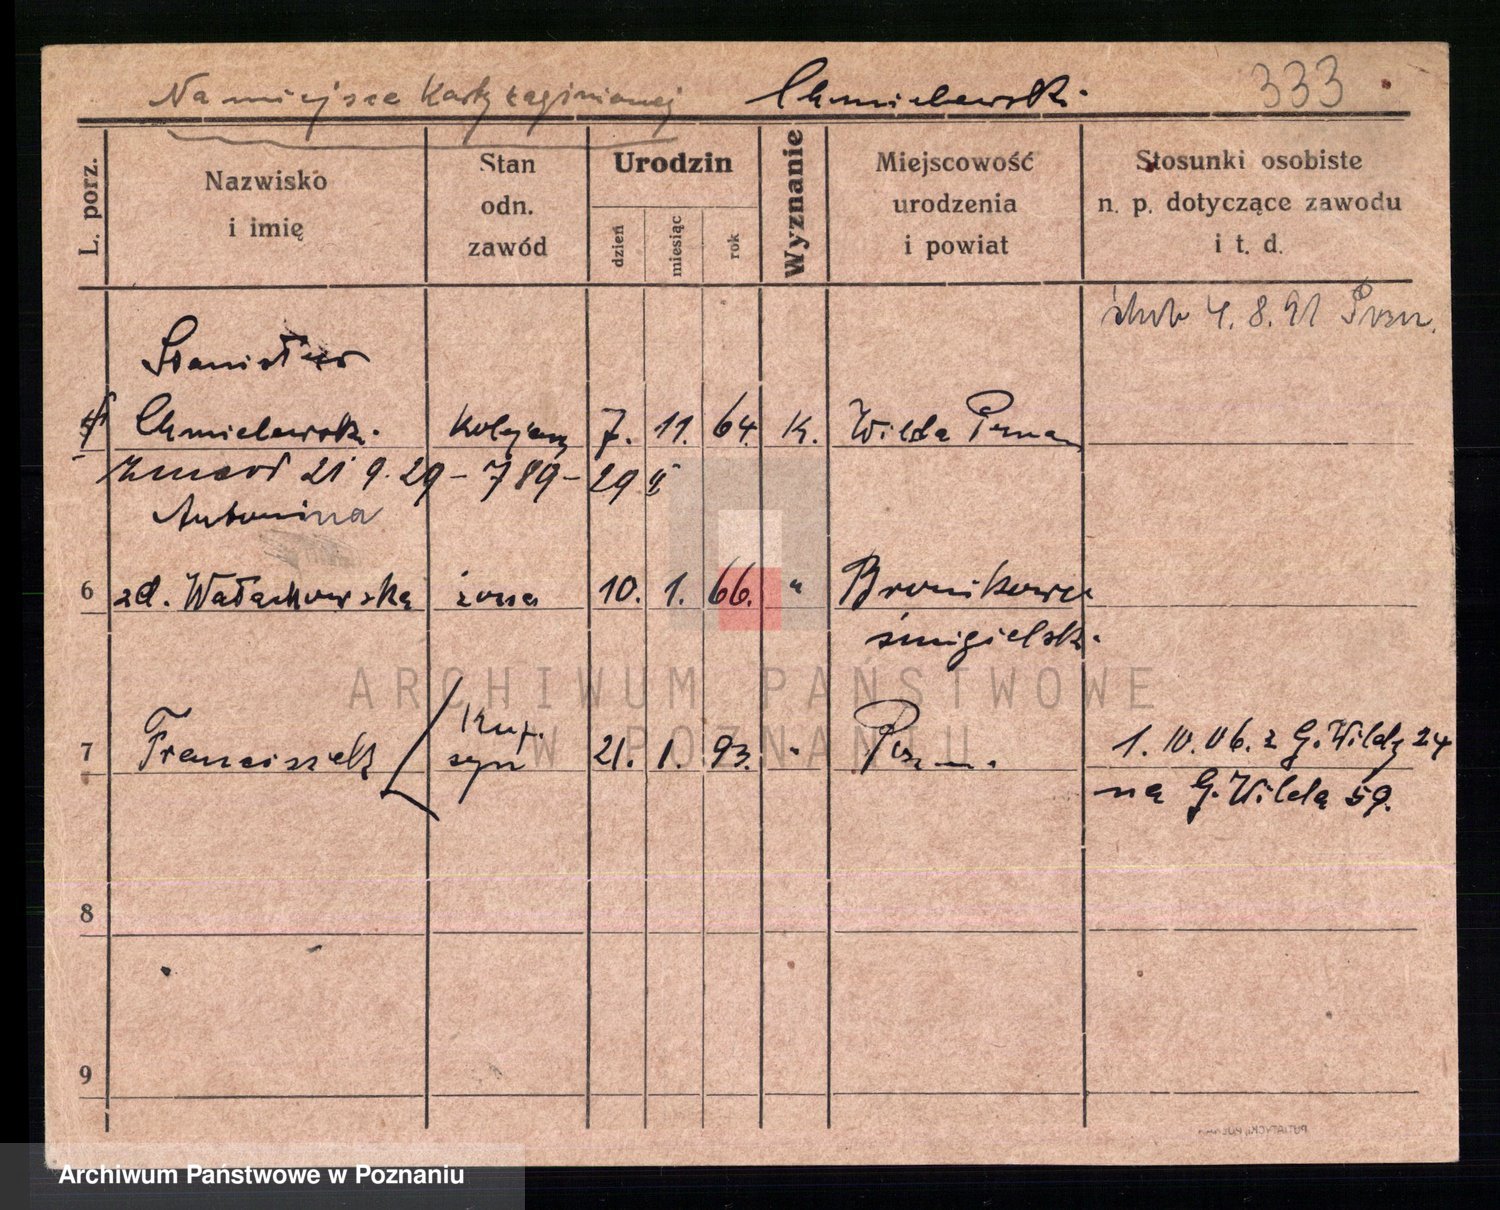 Na miejsce karty zaginionej Chmielewski 333
L. porz.
Nazwisko i imię
Stan odn. zawód
Urodzin
dzień
miesiąc
rok
Wyznanie
Miejscowość urodzenia i powiat
Stosunki osobiste n. p. dotyczące zawodu i t. d.
ślub 4. 8. 91 Pozn.
Stanisław
Chmielewski kolejarz 7. 11. 64. K. Wilda Poznań
zmarł 21 9. 29 – 789 – 29 II
Antonina
6 zd. Wałachowska żona 10. 1. 66. " Bronikowo
śmigielski
Kup.
7 Franciszek syn 21. 1. 93. " Pozn. 1. 10. 06. z G. Wildy 24
na G. Wildą 59.
8
9
ARCHIWUM PAŃSTWOWE
W POZNANIU
Archiwum Państwowe w Poznaniu